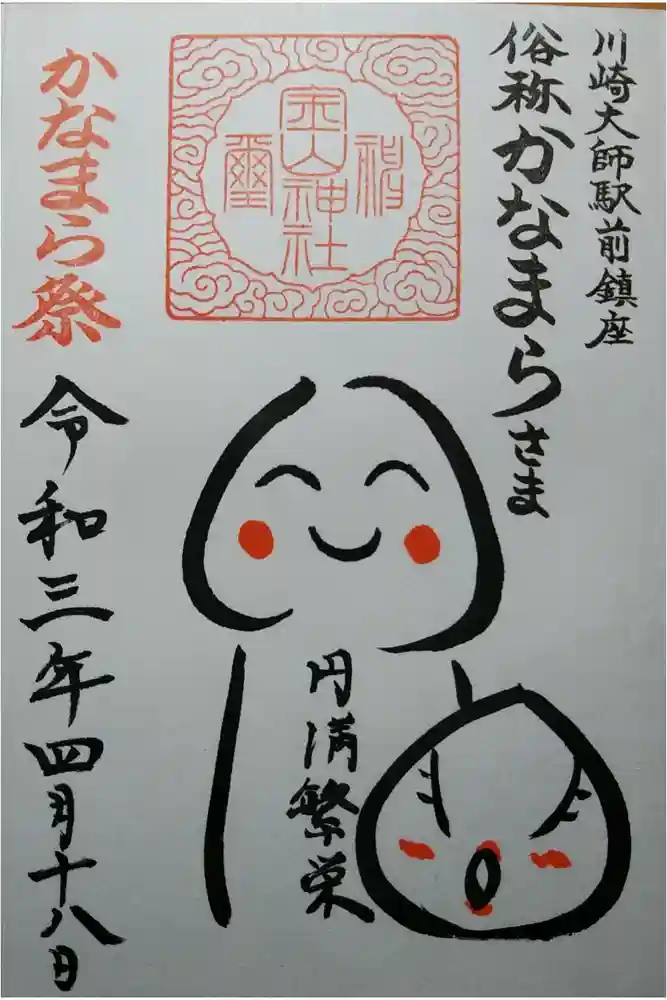 川崎大師駅前鎮座
俗称かなまらさま
金山神社
かなまら祭
円満繁栄
令和三年四月十八日